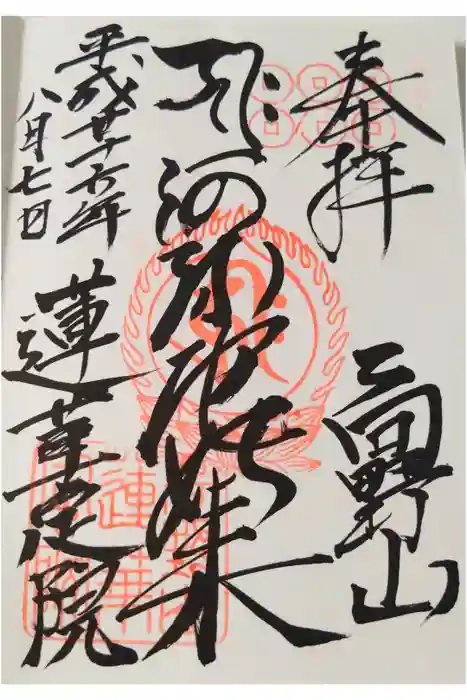 奉拝
高野山
阿弥陀如来
平成廿六年
八月七日
蓮華定院